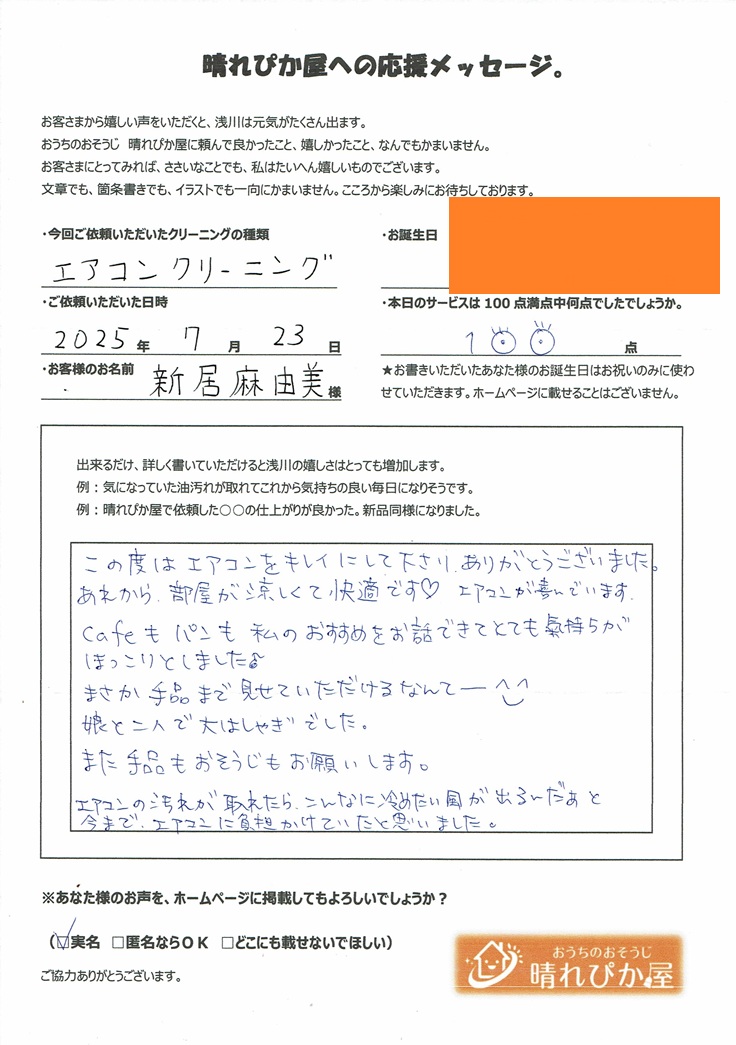 晴れぴか屋への応援メッセージ。
お客さまから嬉しい声をいただくと、浅川は元気がたくさん出ます。
おうちのおそうじ 晴れぴか屋に頼んで良かったこと、嬉しかったこと、なんでもかまいません。
お客さまにとってみれば、ささいなことでも、私はたいへん嬉しいものでございます。
文章でも、箇条書きでも、イラストでも一向にかまいません。こころから楽しみにお待ちしております。
・今回ご依頼いただいたクリーニングの種類
エアコンクリーニング
・お誕生日
・ご依頼いただいた日時
2025年 7月 23日
・本日のサービスは100点満点中何点でしたでしょうか。
100点
・お客様のお名前
新居麻由美様
★お書きいただいたあなた様のお誕生日はお祝いのみに使わ
せていただきます。ホームページに載せることはございません。
出来るだけ、詳しく書いていただけると浅川の嬉しさはとっても増加します。
例：気になっていた油汚れが取れてこれから気持ちの良い毎日になりそうです。
例：晴れぴか屋で依頼した○○の仕上がりが良かった。新品同様になりました。
この度はエアコンをキレイにして下さり、ありがとうございました。
あれから、部屋が涼しくて快適です♡ エアコンが喜んでいます。
Cafeもパンも私のおすすめをお話できてとても氣持ちが
ほっこりとしました♪
まさか手品まで見せていただけるなんてー ^^
娘と二人で大はしゃぎでした。
また手品もおそうじもお願いします。
エアコンの汚れが取れたら、こんなに冷めたい風が出るんだぁと
今まで、エアコンに負担かけていたと思いました。
※あなた様のお声を、ホームページに掲載してもよろしいでしょうか？
（☑実名 □匿名ならＯＫ □どこにも載せないでほしい）
ご協力ありがとうございます。
おうちのおそうじ
晴れぴか屋